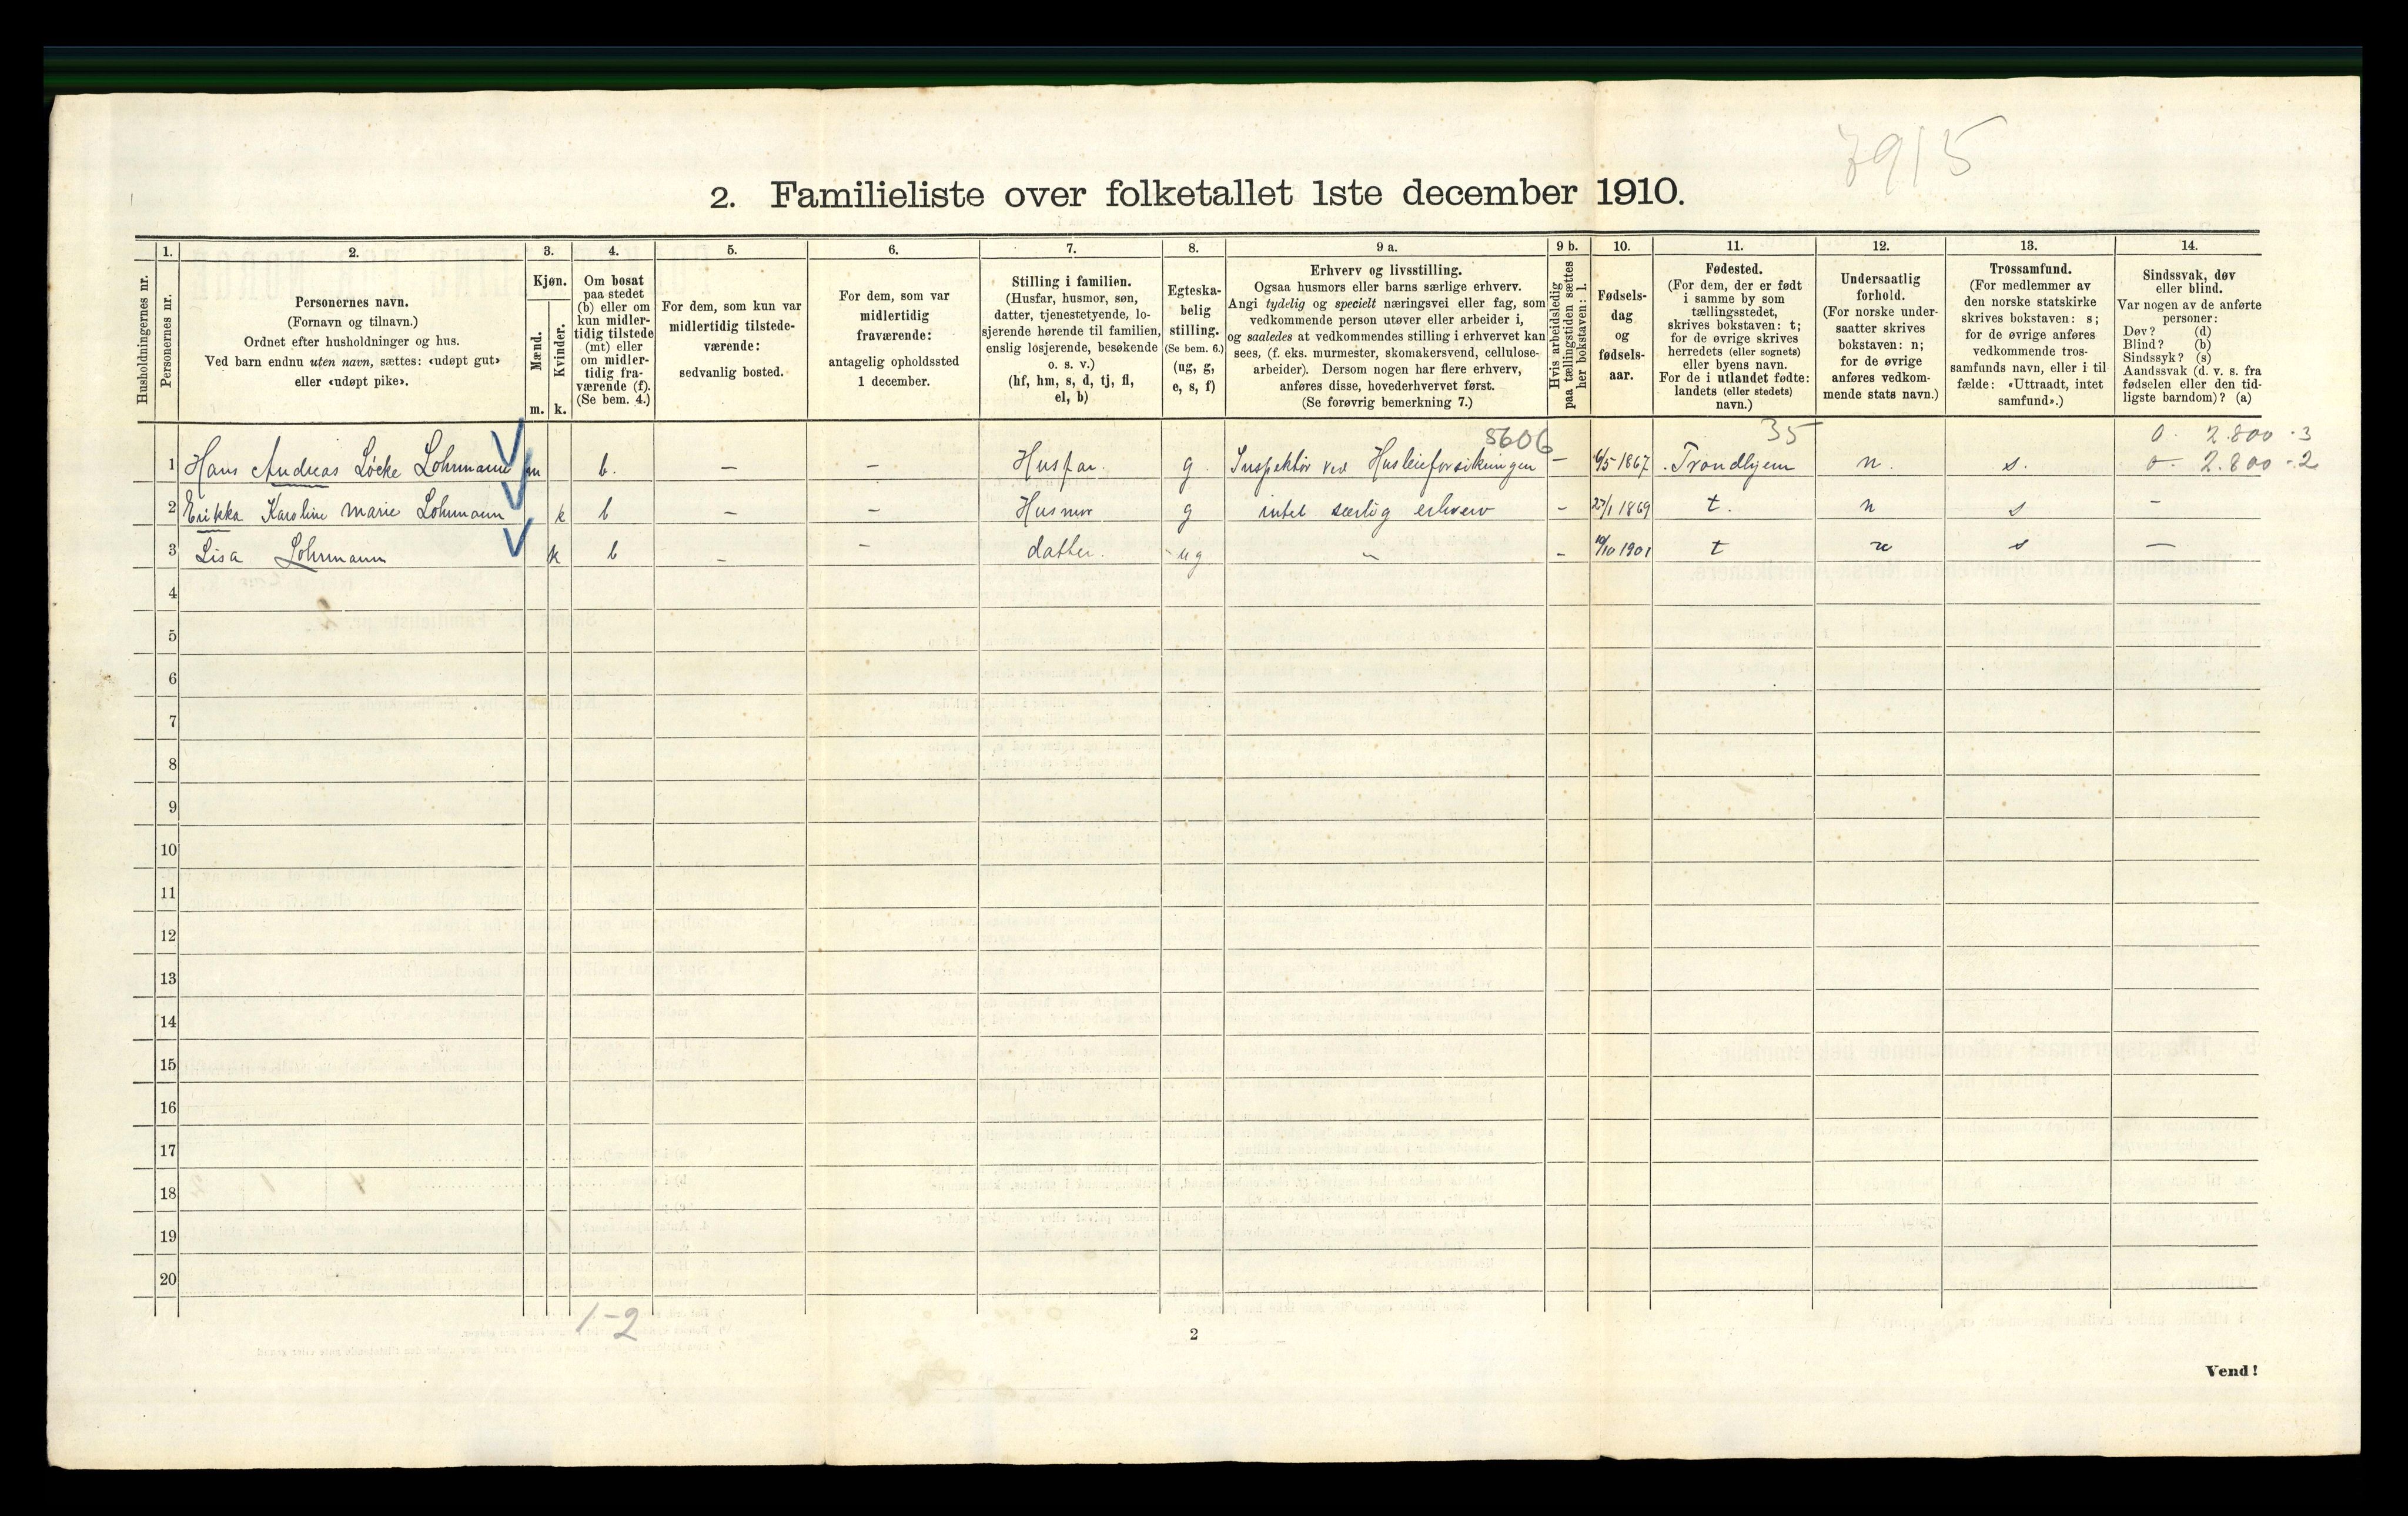 7915
2. Familieliste over folketallet 1ste december 1910.
Husholdningernes nr.
1.
Personernes nr.
2.
Personernes navn.
(Fornavn og tilnavn.)
Ordnet efter husholdninger og hus.
Ved barn endnu uten navn, sættes: «udøpt gut»
eller «udøpt pike».
3.
Kjøn.
Mænd.
Kvinder.
m. k.
4.
Om bosat
paa stedet
(b) eller om
kun midler-
tidig tilstede
(mt) eller
om midler-
tidig fra-
værende (f).
(Se bem. 4.)
5.
For dem, som kun var
midlertidig tilstede-
værende:
sedvanlig bosted.
6.
For dem, som var
midlertidig
fraværende:
antagelig opholdssted
1 december.
7.
Stilling i familien.
(Husfar, husmor, søn,
datter, tjenestetyende, lo-
sjerende hørende til familien,
enslig losjerende, besøkende
o. s. v.)
(hf, hm, s, d, tj, fl,
el, b)
8.
Egteska-
belig
stilling.
(Se bem. 6.)
(ug, g,
e, s, f)
9 a.
Erhverv og livsstilling.
Ogsaa husmors eller barns særlige erhverv.
Angi tydelig og specielt næringsvei eller fag, som
vedkommende person utøver eller arbeider i,
og saaledes at vedkommendes stilling i erhvervet kan
sees, (f. eks. murmester, skomakersvend, cellulose-
arbeider). Dersom nogen har flere erhverv,
anføres disse, hovederhvervet først.
(Se forøvrig bemerkning 7.)
9 b.
Hvis arbeidsledig
paa tællingstiden sættes
her bokstaven: l.
10.
Fødsels-
dag
og
fødsels-
aar.
11.
Fødested.
(For dem, der er født
i samme by som
tællingsstedet,
skrives bokstaven: t;
for de øvrige skrives
herredets (eller sognets)
eller byens navn.
For de i utlandet fødte:
landets (eller stedets)
navn.)
12.
Undersaatlig
forhold.
(For norske under-
saatter skrives
bokstaven: n;
for de øvrige
anføres vedkom-
mende stats navn.)
13.
Trossamfund.
(For medlemmer av
den norske statskirke
skrives bokstaven: s;
for de øvrige anføres
vedkommende tros-
samfunds navn, eller i til
fælde: «Uttraadt, intet
samfund».)
14.
Sindssvak, døv
eller blind.
Var nogen av de anførte
personer:
Døv? (d)
Blind? (b)
Sindssyk? (s)
Aandssvak (d. v. s. fra
fødselen eller den tid-
ligste barndom)? (a)
5606 35 0. 2.800 - 3
1 Hans Andreas Løcke Lohrmann m b. — — Husfar. g. Inspektør ved Husleieforsikringen — 6/5 1867 Trondhjem n. s. 0. 2.800 - 2
2 Erikka Karoline Marie Lohrmann k b — — Husmor g intet særlig erhverv — 27/1 1869 t. n s —
3 Lisa Lohrmann k b — — datter. ug. — — 10/10 1901 t n s —
4
5
6
7
8
9
10
11
12
13
14
15
16
17
18
19
20
1-2
2
Vend!